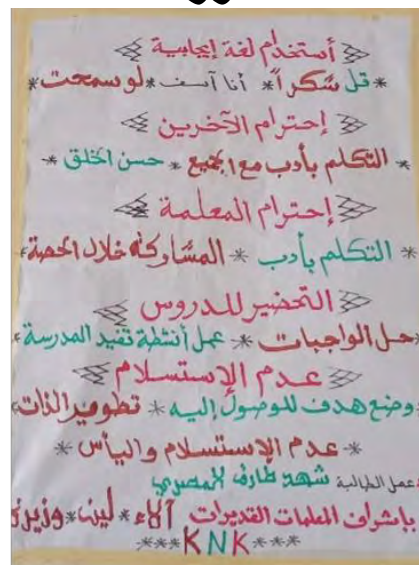 أستخدام لغة إيجابية
*قل شكراً* أنا آسف *لو سمحت*
إحترام الآخرين
* التكلم بأدب مع الجميع * حسن الخلق *
إحترام المعلمة
* التكلم بأدب * المشاركة خلال الحصة*
التحضير للدروس
*حل الواجبات * عمل أنشطة تفيد المدرسة*
عدم الإستسلام
*وضع هدف للوصول إليه * تطوير الذات*
*عدم الإستسلام واليأس*
عمل الطالبة شهد طارق المصري
بإشراف المعلمات القديرات آلاء*لين*وزيرة
***KNK***